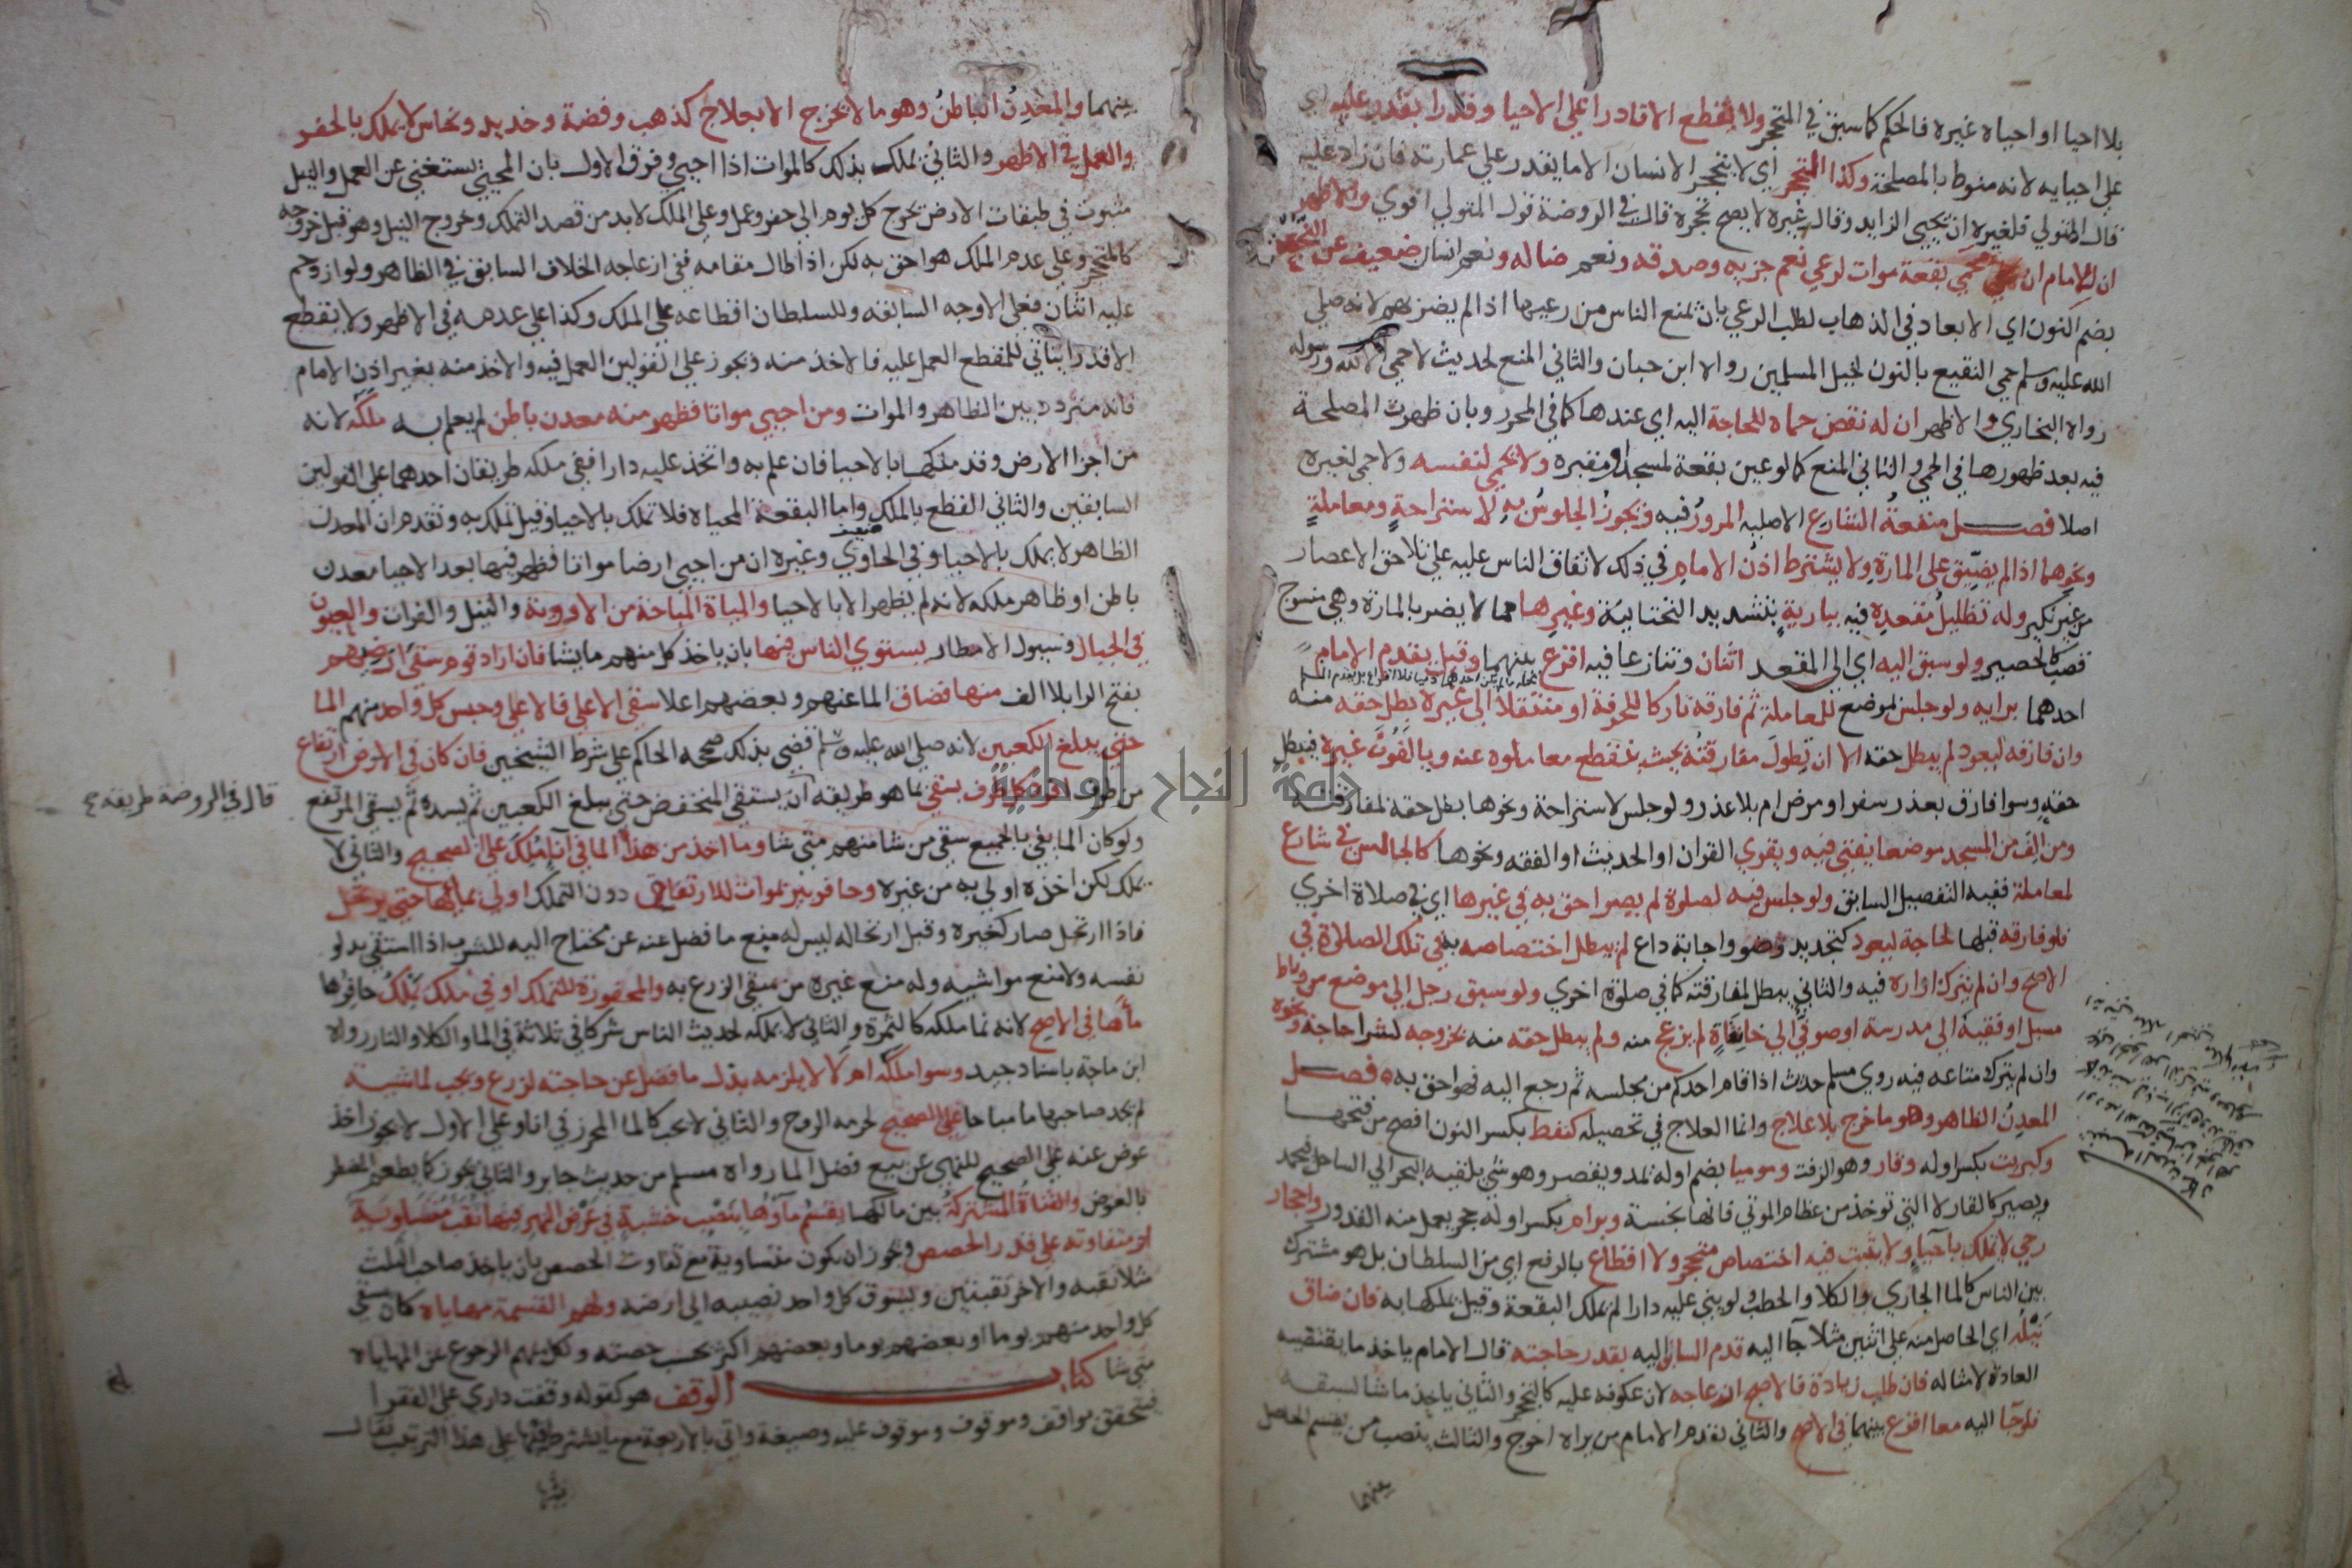 بلا احيا او احياه غيره فالحكم كما سبق في المتحجر ولا يقطع الا قادرا علي الاحيا وقدرا يقدر عليه اي
علي احيايه لانه منوط بالمصلحة وكذا المتحجر اي لا يتحجر الانسان الا ما يقدر علي عمارته فان زاد عليه
قال المتولي فلغيره ان يحيي الزايد وقال غيره لا يصح تحجره قال في الروضة قول المتولي اقوي والاظهر
ان للامام ان يحمي بقعة موات لرعي نعم جزيه وصدقه ونعم ضاله ونعم انسان ضعيف عن النجعة
بضم النون اي الابعاد في الذهاب لطلب الرعي بان يمنع الناس من رعيها اذا لم يضر بهم لانه صلي
الله عليه وسلم حمي النقيع بالنون لخيل المسلمين رواه ابن حبان والثاني المنع لحديث لا حمي الا لله ورسوله
رواه البخاري والاظهر ان له نقض حماه للحاجة اليه اي عندها كما في المحرر وبان ظهرت المصلحة
فيه بعد ظهورها في الحمي والثاني المنع كما لو عين بقعة لمسجد او مقبره ولا يحمي لنفسه ولا حمي لغيره
اصلا فصل منفعة الشارع الاصليه المرور فيه ويجوز الجلوس به لاستراحة ومعاملة
ونحوهما اذا لم يضيق علي المارة ولا يشترط اذن الامام في ذلك لاتفاق الناس عليه علي تلاحق الاعصار
من غير نكير وله تظليل مقعده فيه ببارية بتشديد التحتانية وغيرها مما لا يضر بالمارة وهي منسوج
قصب كالحصير ولو سبق اليه اي الي المقعد اثنان وتنازعا فيه اقرع بينهما وقيل يقدم الامام
احدهما برايه ولو جلس لموضع للمعاملة ثم فارقه تاركا للحرفة او منتقلا الي غيره بطل حقه منه
وان فارقه ليعود لم يبطل حقه الا ان تطول مفارقته بحيث ينقطع معاملوه عنه ويالفون غيره فيبطل
حقه وسوا فارق بعذر سفر او مرض ام بلا عذر ولو جلس لاستراحة ونحوها بطل حقه لمفارقته
ومن الف من المسجد موضعا يفتي فيه ويقري القران او الحديث او الفقه ونحوها كالجالس في شارع
لمعاملة ففيه التفصيل السابق ولو جلس فيه لصلوة لم يصر احق به في غيرها اي في صلاة اخري
فلو فارقه قبلها لحاجة ليعود كتجديد وضوء واجابة داع لم يبطل اختصاصه به في تلك الصلاة في
الاصح وان لم يترك ازاره فيه والثاني يبطل لمفارقته كما في صلوة اخري ولو سبق رجل الي موضع من رباط
مسبل او فقيه الي مدرسة او صوفي الي خانقاة لم يزعج منه ولم يبطل حقه منه بخروجه لشرا حاجة ونحوه
وان لم يترك متاعه فيه روي مسلم حديث اذا قام احدكم من مجلسه ثم رجع اليه فهو احق به فصل
المعدن الظاهر وهو ما خرج بلا علاج وانما العلاج في تحصيله كنفط بكسر النون افصح من فتحها
وكبريت بكسر اوله وقار وهو الزفت وموميا بضم اوله يمد ويقصر وهو شي يلقيه البحر الي الساحل فيجمد
ويصير كالقار لا التي توخذ من عظام الموتي فانها نجسة وبرام بكسر اوله حجر يعمل منه القدور واحجار
رحي لا يملك باحيا ولا يثبت فيه اختصاص متحجر ولا اقطاع بالرفع اي من السلطان بل هو مشترك
بين الناس كالما الجاري والكلا والحطب ولو بني عليه دارا لم يملك البقعة وقيل يملكها به فان ضاق
نيله اي الحاصل منه علي اثنين مثلا جاآ اليه قدم السابق اليه بقدر حاجته قال الامام ياخذ ما يقتضيه
العادة لامثاله فان طلب زيادة فالاصح ازعاجه لان عكوفه عليه كالتحجر والثاني ياخذ ما شا لسبقه
فلو جاآ اليه معا اقرع بينهما في الاصح والثاني يقدم الامام من يراه احوج والثالث ينصب من يقسم الحاصل
بينهما
بينهما والمعدن الباطن وهو ما لا يخرج الا بعلاج كذهب وفضة وحديد ونحاس لا يملك بالحفر
والعمل في الاظهر والثاني يملك بذلك كالموات اذا احيي وفرق الاول بان المحيي يستغني عن العمل والنيل
مثبوت في طبقات الارض يحوج كل يوم الي حفر وعمل وعلي الملك لا بد من قصد التملك وخروج النيل وهو قبل خروجه
كالمتحجر وعلي عدم الملك هو احق به لكن اذا طال مقامه ففي ازعاجه الخلاف السابق في الظاهر ولو ازدحم
عليه اثنان فعلي الاوجه السابقه وللسلطان اقطاعه علي الملك وكذا علي عدمه في الاظهر ولا يقطع
الا قدرا يتاتي للمقطع العمل عليه فالاخذ منه ويجوز علي القولين العمل فيه والاخذ منه بغير اذن الامام
فانه متردد بين الظاهر والموات ومن احيي مواتا فظهر منه معدن باطن لم يعلم به ملكه لانه
من اجزا الارض وقد ملكها بالاحيا فان علم به واتخذ عليه دارا ففي ملكه طريقان احدهما علي القولين
السابقين والثاني القطع بالملك واما البقعة المحياه فلا تملك بالاحيا وقيل تملك به وتقدم ان المعدن
الظاهر لا يملك بالاحيا وفي الحاوي وغيره ان من احيي ارضا مواتا فظهر فيها بعد الاحيا معدن
باطن او ظاهر ملكه لانه لم يظهر الا بالاحيا والمياة المباحة من الاودية والنيل والفرات والعيون
في الجبال وسيول الامطار يستوي الناس فيها بان ياخذ كل منهم ما يشا فان اراد قوم سقي ارضيهم
بفتح الرا بلا الف منها فضاق الما عنهم وبعضهم اعلا سقي الاعلي فالاعلي وحبس كل واحد منهم الما
حتي يبلغ الكعبين لانه صلي الله عليه وسلم قضي بذلك صححه الحاكم علي شرط الشيخين فان كان في الارض ارتفاع
من طرف افرد كل طرف بسقي بما هو طريقه ان يسقي المنخفض حتي يبلغ الكعبين ثم يسده ثم يسقي المرتفع
قال في الروضة طريقه
ولو كان الما يفي بالجميع سقي من شا منهم متي شا وما اخذ من هذا الما في انا ملك علي الصحيح والثاني لا
يملك لكن اخذه اولي به من غيره وحافر بير بموات للارتفاق دون التملك اولي بمائها حتي يرتحل
فاذا ارتحل صار كغيره وقبل ارتحاله ليس له منع ما فضل عنه عن محتاج اليه للشرب اذا استقي بدلو
نفسه ولا منع مواشيه وله منع غيره من سقي الزرع به والمحفورة للتملك او في ملك يملك حافرها
مأها في الاصح لانه نما ملكه كالثمرة والثاني لا يملكه لحديث الناس شركا في ثلاثة في الما والكلا والنار رواه
ابن ماجة باسناد جيد وسوا ملكه ام لا لا يلزمه بذل ما فضل عن حاجته لزرع ويجب لماشية
لم يجد صاحبها ما مباحا علي الصحيح لحرمه الروح والثاني لا يجب كالما المحرز في انا وعلي الاول لا يجوز اخذ
عوض عنه علي الصحيح للنهي عن بيع فضل الما رواه مسلم من حديث جابر والثاني يجوز كما يطعم المضطر
بالعوض والقناة المشتركة بين مالكها يقسم ماؤها بنصب خشبة في عرض النهر فيها ثقب متساوية
او متفاوته علي قدر الحصص ويجوز ان يكون متساوية مع تفاوت الحصص بان ياخذ صاحب الثلث
مثلا ثقبه والاخر ثقبتين ويسوق كل واحد نصيبه الي ارضه ولهم القسمة مهاياه كان يسقي
كل واحد منهم يوما او بعضهم يوما وبعضهم اكثر بحسب حصته ولكل منهم الرجوع عن المهاياه
متي شا كتاب الوقف هو كقوله وقفت داري علي الفقرا
فتحقق بواقف وموقوف وموقوف عليه وصيغة واتي بالاربعة مع ما يشترط فيها علي هذا الترتيب فقال